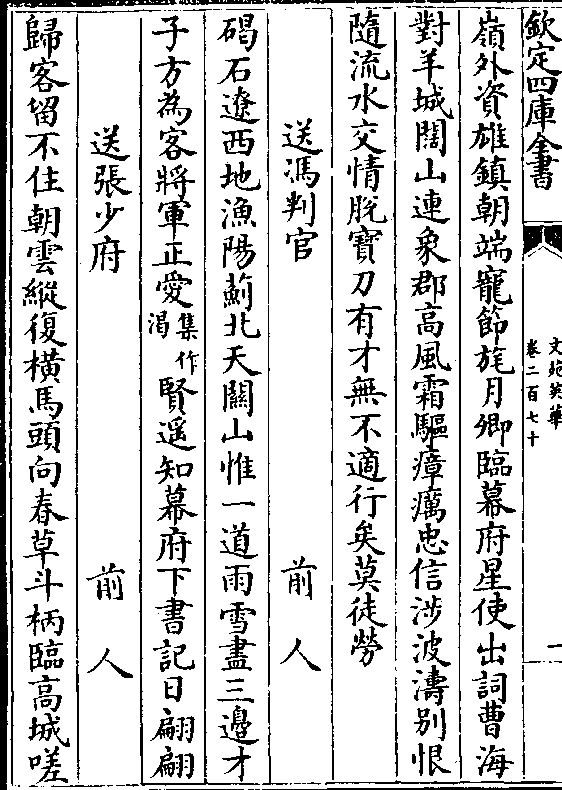 欽定四庫全書
文苑英華
卷二百七十
一
嶺外資雄鎮朝端寵節旄月卿臨幕府星使出詞曹海
對羊城闊山連象郡高風霜驅瘴癘忠信涉波濤別恨
隨流水交情脫寶刀有才無不適行矣莫徒勞
送馮判官 前人
碣石遼西地漁陽薊北天關山惟一道雨雪盡三邊才
子方為客將軍正愛集作渴賢遥知幕府下書記日翩翩
送張少府 前人
歸客留不住朝雲縱復横馬頭向春草斗柄臨高城嗟